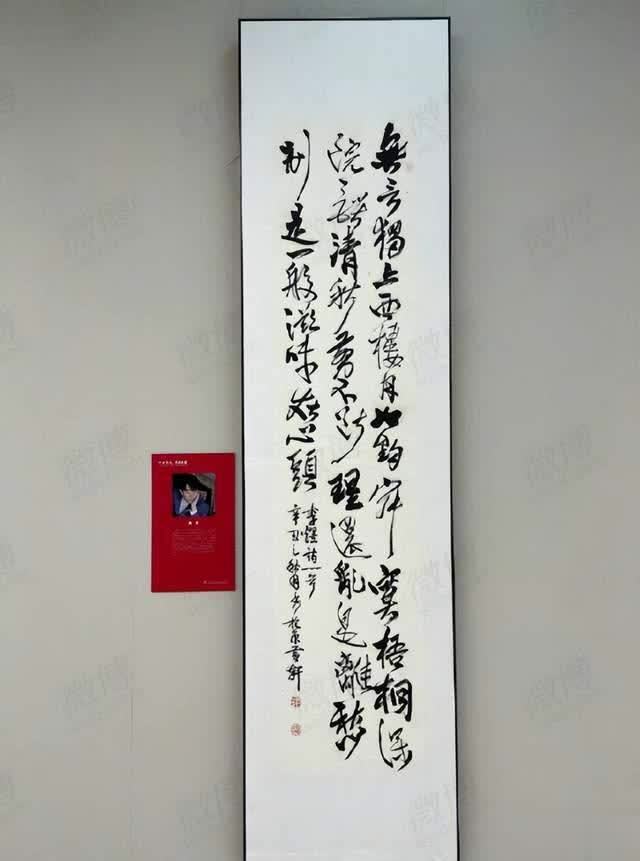 無言獨上西樓月如鈎寂寞梧桐深
院鎖清秋剪不斷理還亂是離愁
別是一般滋味在心頭
李煜詩一首
辛丑之秋月書於京
微博